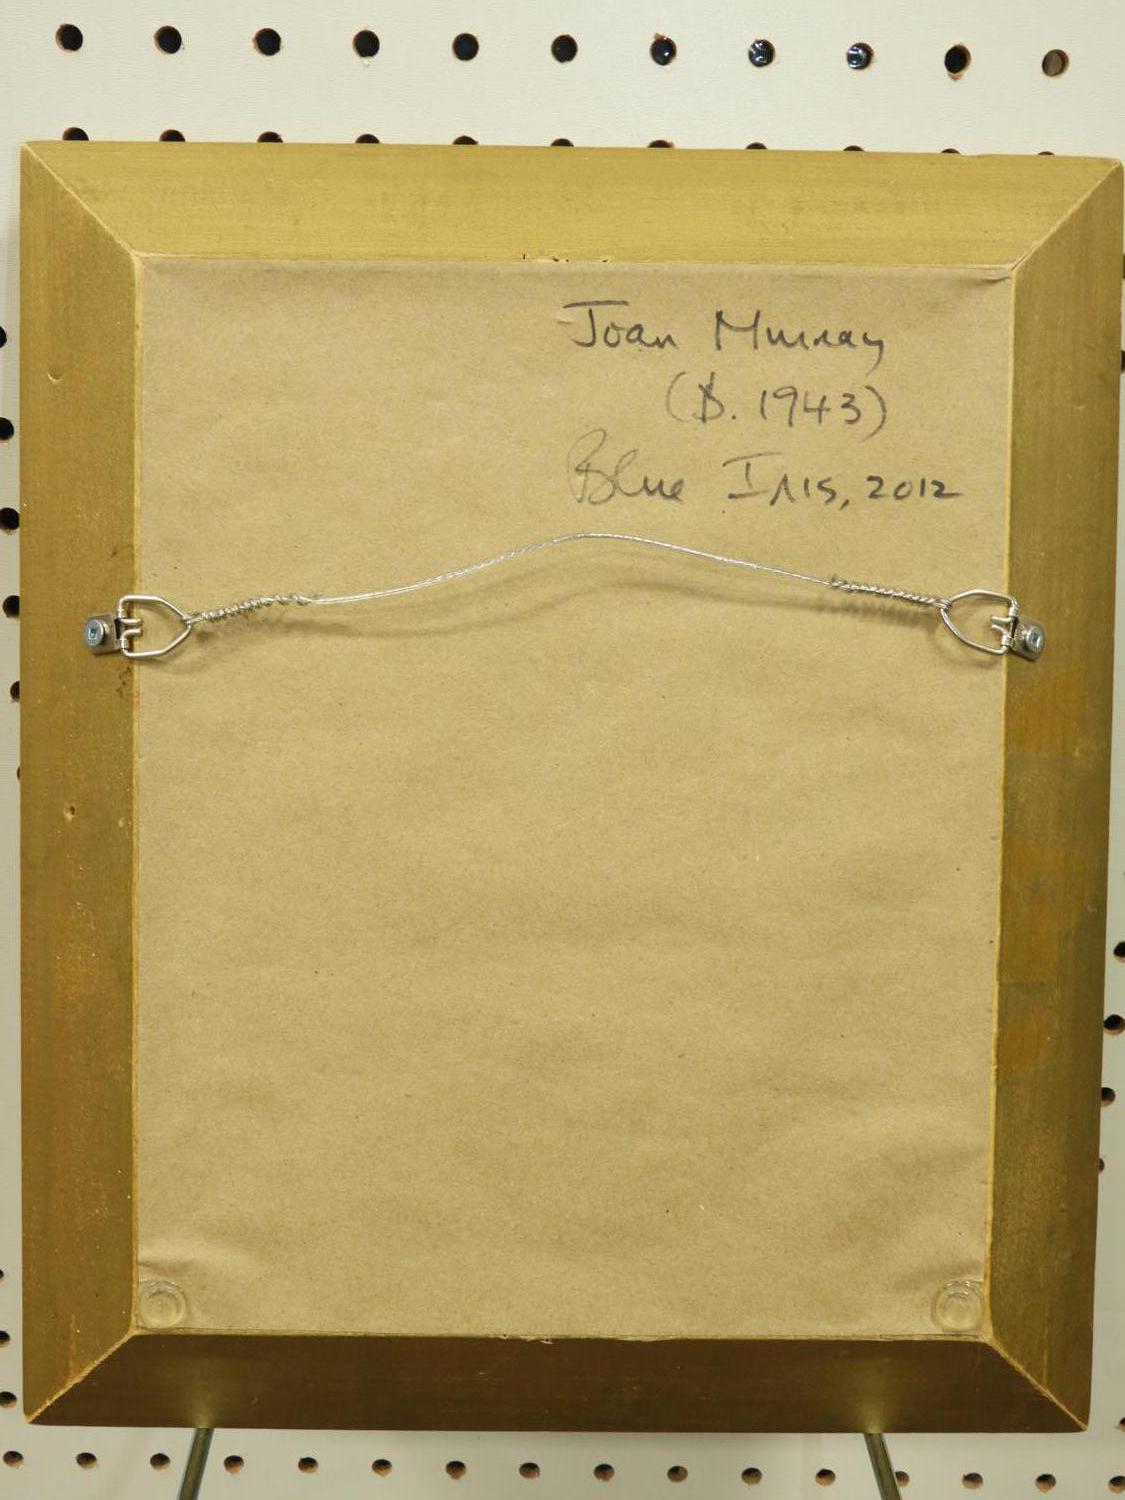 Joan Murray
(B. 1943)
Blue Iris, 2012